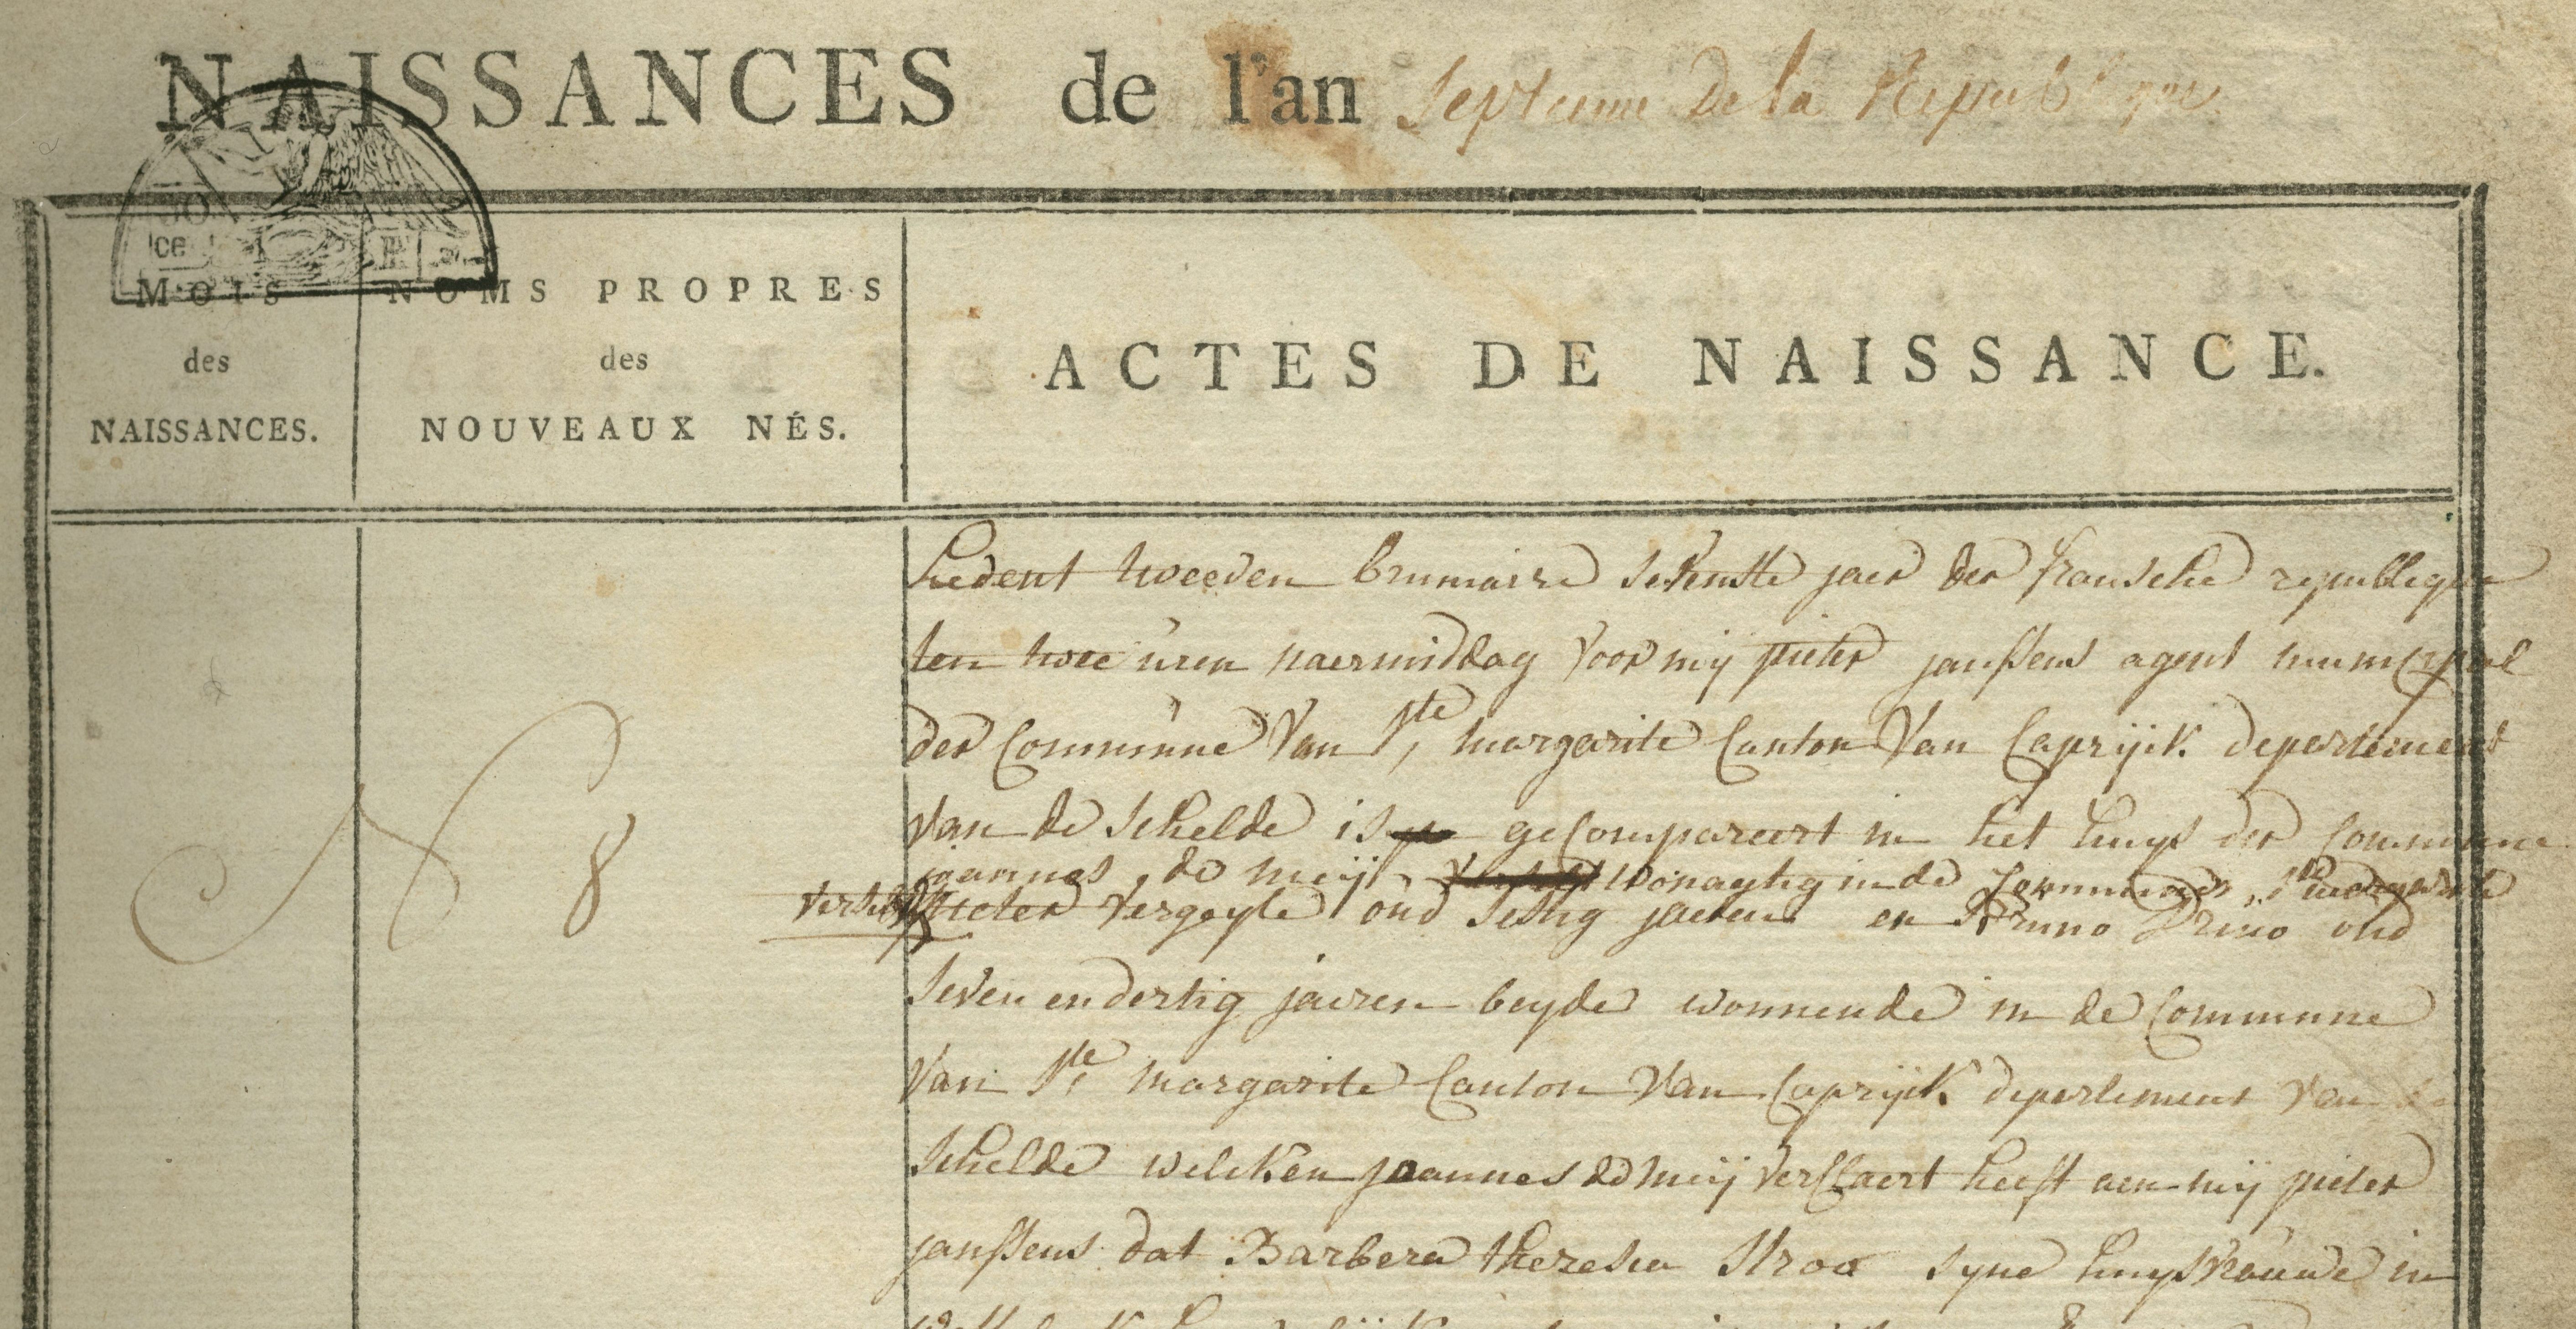 NAISSANCES de l'an Septieme De la Republique
MOIS
des
NAISSANCES.
NOMS PROPRES
des
NOUVEAUX NÉS.
ACTES DE NAISSANCE.
N 8
hedent tweeden brumaire sevenste jaer der fransche republique
ten twee uren naermiddag voor mij pieter janssens agent municipal
der Commune van Ste margarite Canton van Caprijck departement
van de Schelde is gecompareert in het huys der Commune
joannes de meij wonagtig in de Commune Ste margarite
pieter vergeyle oud sestig jaeren en Bruno oud
seven en dertig jaeren beyde wonnende in de Commune
van Ste margarite Canton van Caprijck departement van de
Schelde welcken joannes de meij verclaert heeft aen mij pieter
janssens dat Barbera theresia Stroo syne huysvrauwe in